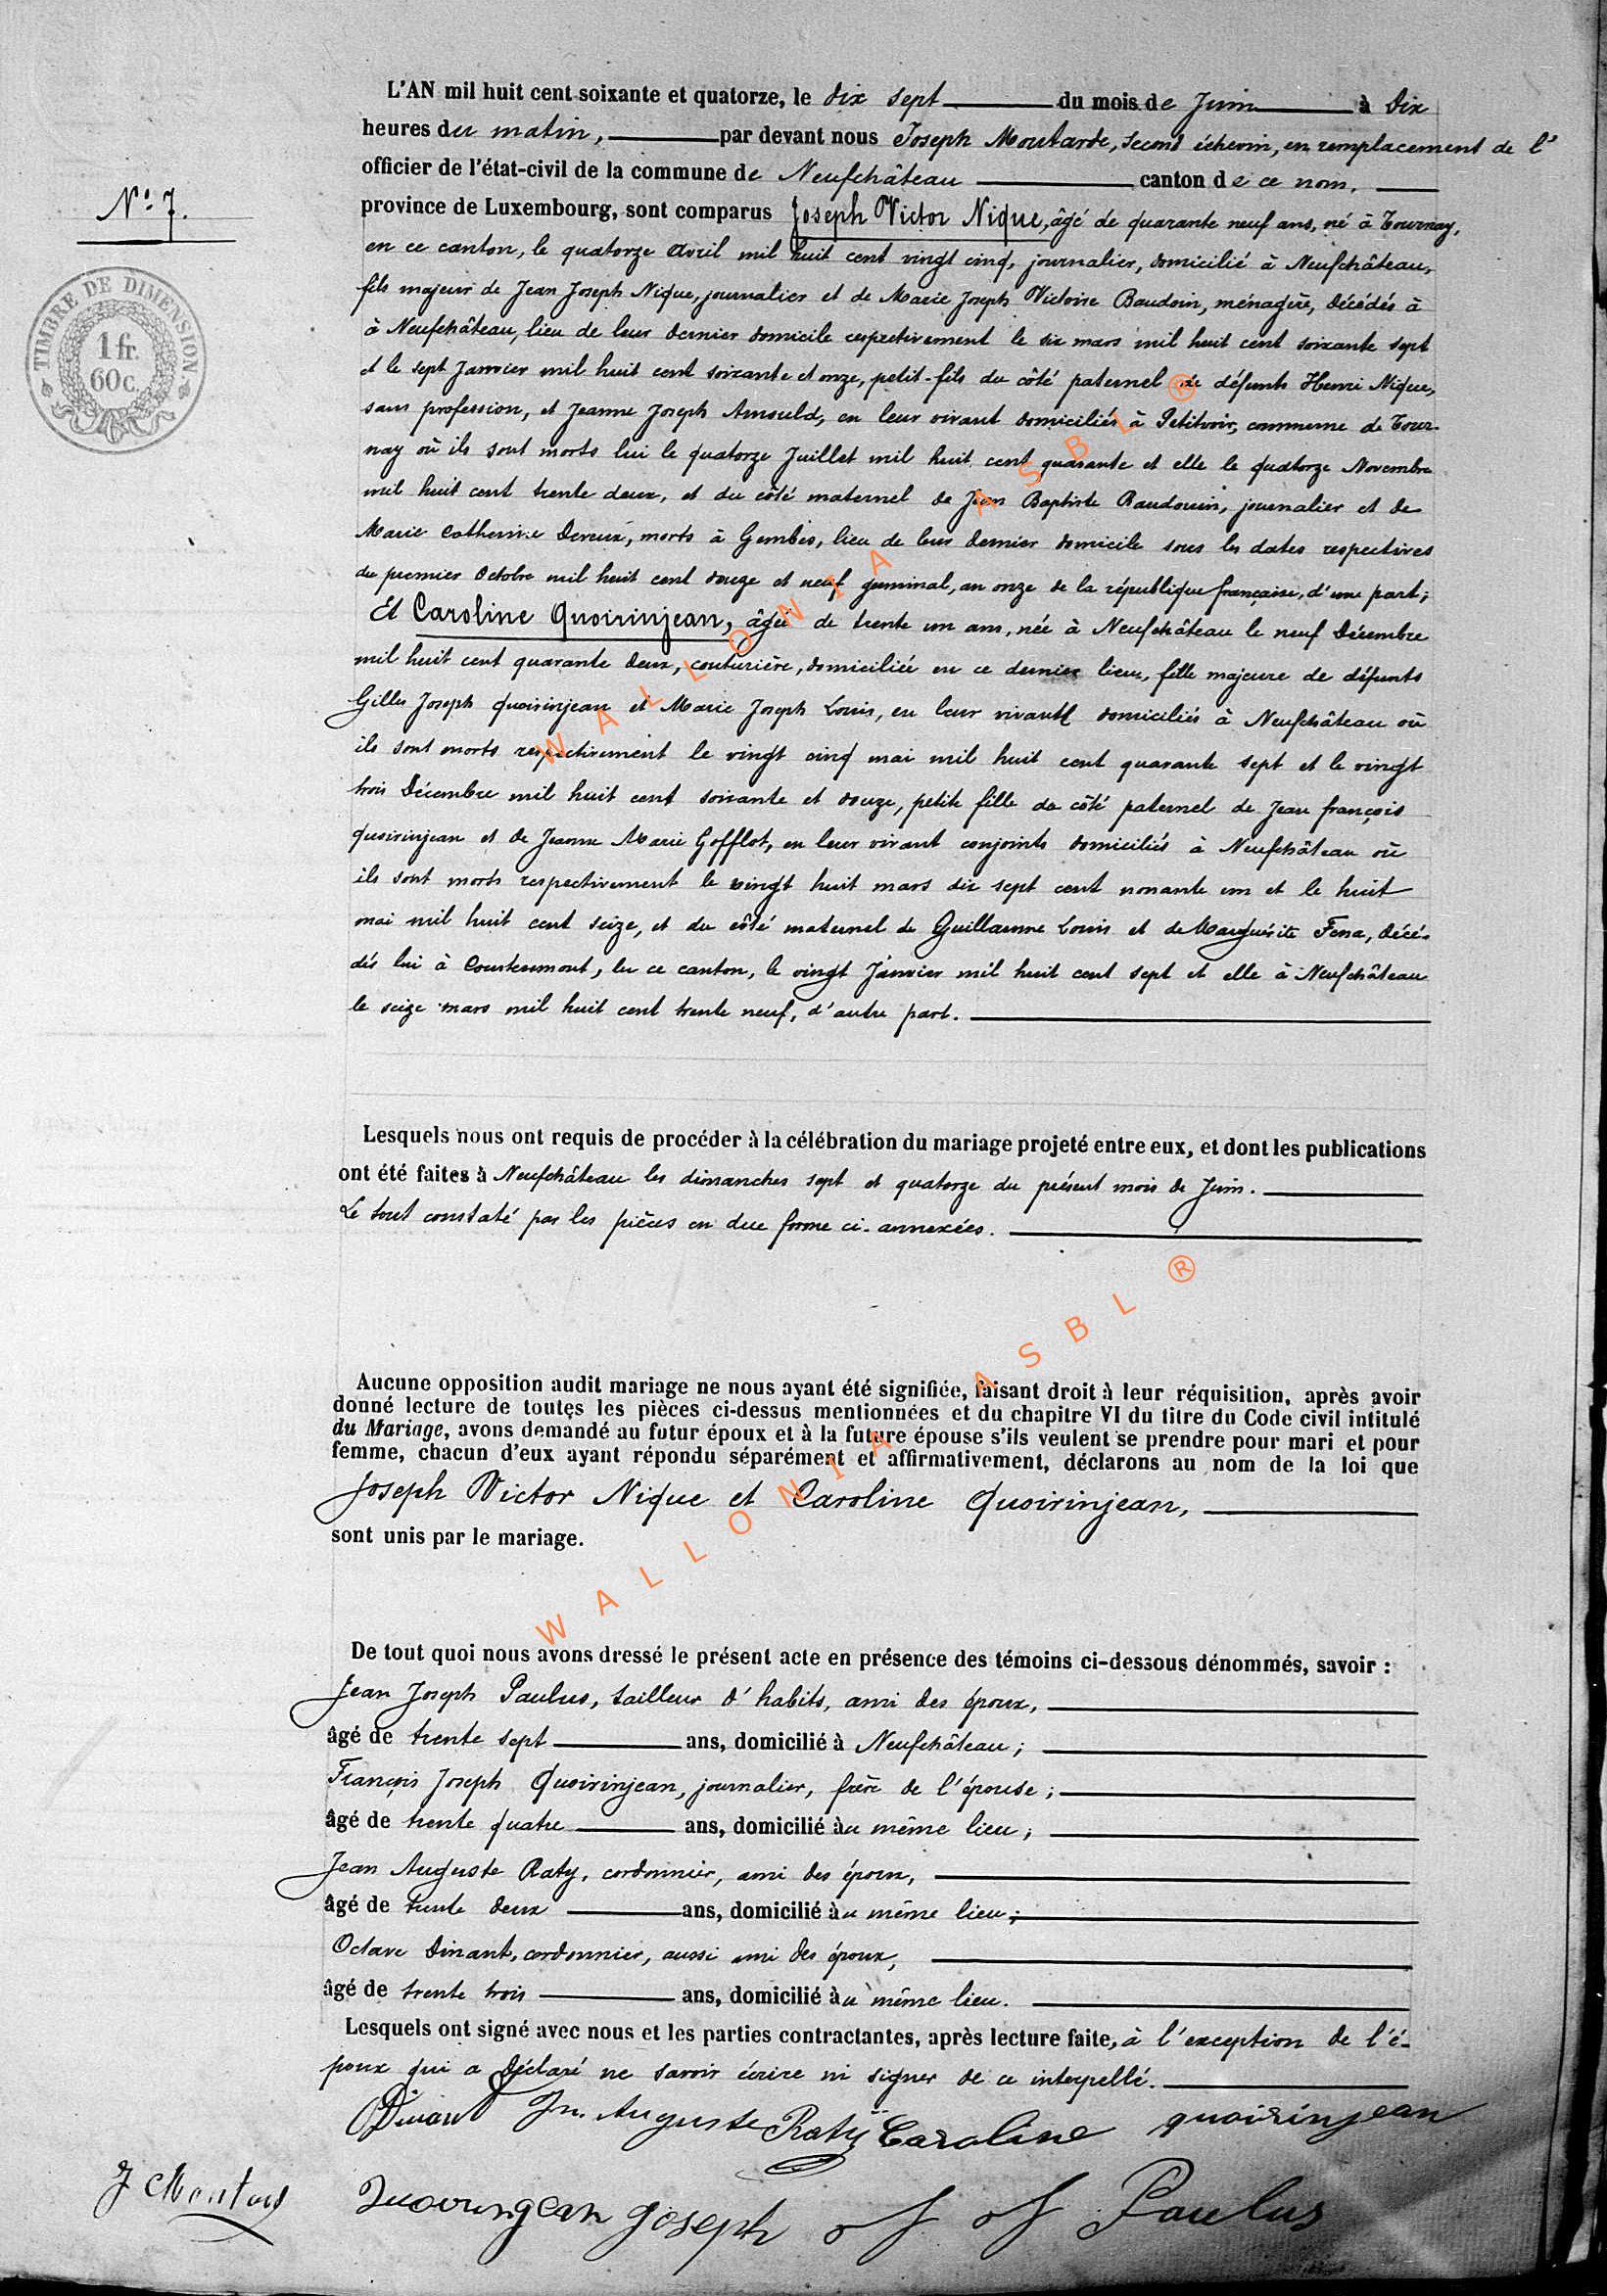 L'AN mil huit cent soixante et quatorze, le dix sept du mois de Juin à dix
heures du matin, par devant nous Joseph Moutarde, second échevin, en remplacement de l'
officier de l'état-civil de la commune de Neufchâteau canton de ce nom.
province de Luxembourg, sont comparus Joseph Victor Nique, âgé de quarante neuf ans, né à Tournay,
en ce canton, le quatorze Avril mil huit cent vingt cinq, journalier, domicilié à Neufchâteau,
fils majeur de Jean Joseph Nique, journalier et de Marie Joseph Victoire Baudoin, ménagère, décédés à
à Neufchâteau, lieu de leur dernier domicile respectivement le six mars mil huit cent soixante sept
et le sept Janvier mil huit cent soixante et onze, petit-fils du côté paternel de défunts Henri Nique,
sans profession, et Jeanne Joseph Arnould, en leur vivant domiciliés à Petitvoir, commune de Tour-
nay où ils sont morts lui le quatorze Juillet mil huit cent quarante et elle le quatorze Novembre
mil huit cent trente deux, et du côté maternel de Jean Baptiste Baudouin, journalier et de
Marie Catherine Devreux, morts à Gembes, lieu de leur dernier domicile sous les dates respectives
du premier Octobre mil huit cent douze et neuf germinal, an onze de la république française, d'une part;
Et Caroline Quoirinjean, âgée de trente un ans, née à Neufchâteau le neuf Décembre
mil huit cent quarante deux, couturière, domiciliée en ce dernier lieu, fille majeure de défunts
Gilles Joseph Quoirinjean et Marie Joseph Louis, en leur vivant domiciliés à Neufchâteau où
ils sont morts respectivement le vingt cinq mai mil huit cent quarante sept et le vingt
trois Décembre mil huit cent soixante et douze, petite fille du côté paternel de Jean françois
Quoirinjean et de Jeanne Marie Gofflot, en leur vivant conjoints domiciliés à Neufchâteau où
ils sont morts respectivement le vingt huit mars dix sept cent nonante un et le huit
mai mil huit cent seize, et du côté maternel de Guillaume Louis et de Marguérite Fena, décé-
dés lui à Courteumont, en ce canton, le vingt Janvier mil huit cent sept et elle à Neufchâteau
le seize mars mil huit cent trente neuf, d'autre part.
N.º 7.
TIMBRE DE DIMENSION
1 fr.
60 c.
Lesquels nous ont requis de procéder à la célébration du mariage projeté entre eux, et dont les publications
ont été faites à Neufchâteau les dimanches sept et quatorze du présent mois de Juin.
Le tout constaté par les pièces en due forme ci-annexées.
Aucune opposition audit mariage ne nous ayant été signifiée, faisant droit à leur réquisition, après avoir
donné lecture de toutes les pièces ci-dessus mentionnées et du chapitre VI du titre du Code civil intitulé
du Mariage, avons demandé au futur époux et à la future épouse s'ils veulent se prendre pour mari et pour
femme, chacun d'eux ayant répondu séparément et affirmativement, déclarons au nom de la loi que
Joseph Victor Nique et Caroline Quoirinjean,
sont unis par le mariage.
De tout quoi nous avons dressé le présent acte en présence des témoins ci-dessous dénommés, savoir :
Jean Joseph Paulus, tailleur d'habits, ami des époux,
âgé de trente sept ans, domicilié à Neufchâteau;
François Joseph Quoirinjean, journalier, frère de l'épouse;
âgé de trente quatre ans, domicilié au même lieu;
Jean Auguste Raty, cordonnier, ami des époux,
âgé de trente deux ans, domicilié au même lieu;
Octave Dinant, cordonnier, aussi ami des époux,
âgé de trente trois ans, domicilié au même lieu.
Lesquels ont signé avec nous et les parties contractantes, après lecture faite, à l'exception de l'é-
poux qui a déclaré ne savoir écrire ni signer de ce interpellé.
ODinant Jn. Auguste Raty Caroline quoirinjean
J Moutard Quoirinjean Joseph J J Paulus
WALLONIA ASBL ®
WALLONIA ASBL ®